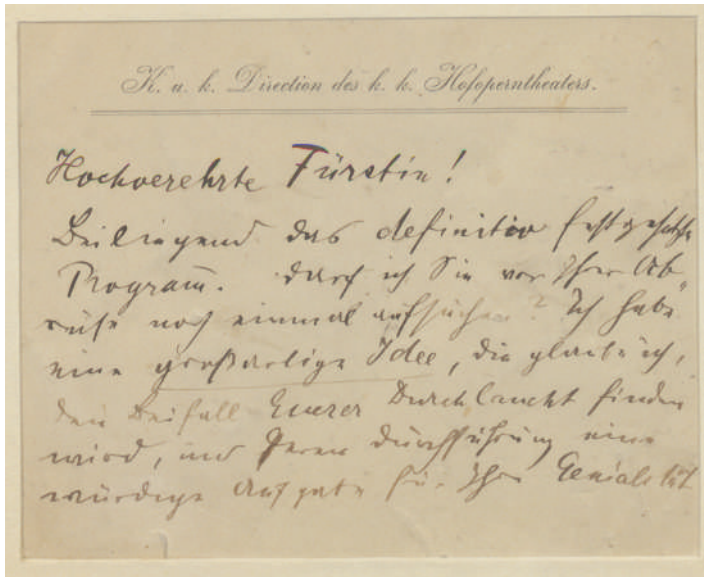 K. u. k. Direction des k. k. Hofoperntheaters.
Hochverehrte Fürstin!
Beiliegend das definitiv festgesetzte
Program̅. Darf ich Sie vor Ihrer Ab-
reise noch einmal aufsuchen? Ich habe
eine großartige Idee, die glaube ich,
den Beifall Euerer Durchlaucht finden
wird, und deren Durchführung eine
würdige Aufgabe für Ihre Genialität